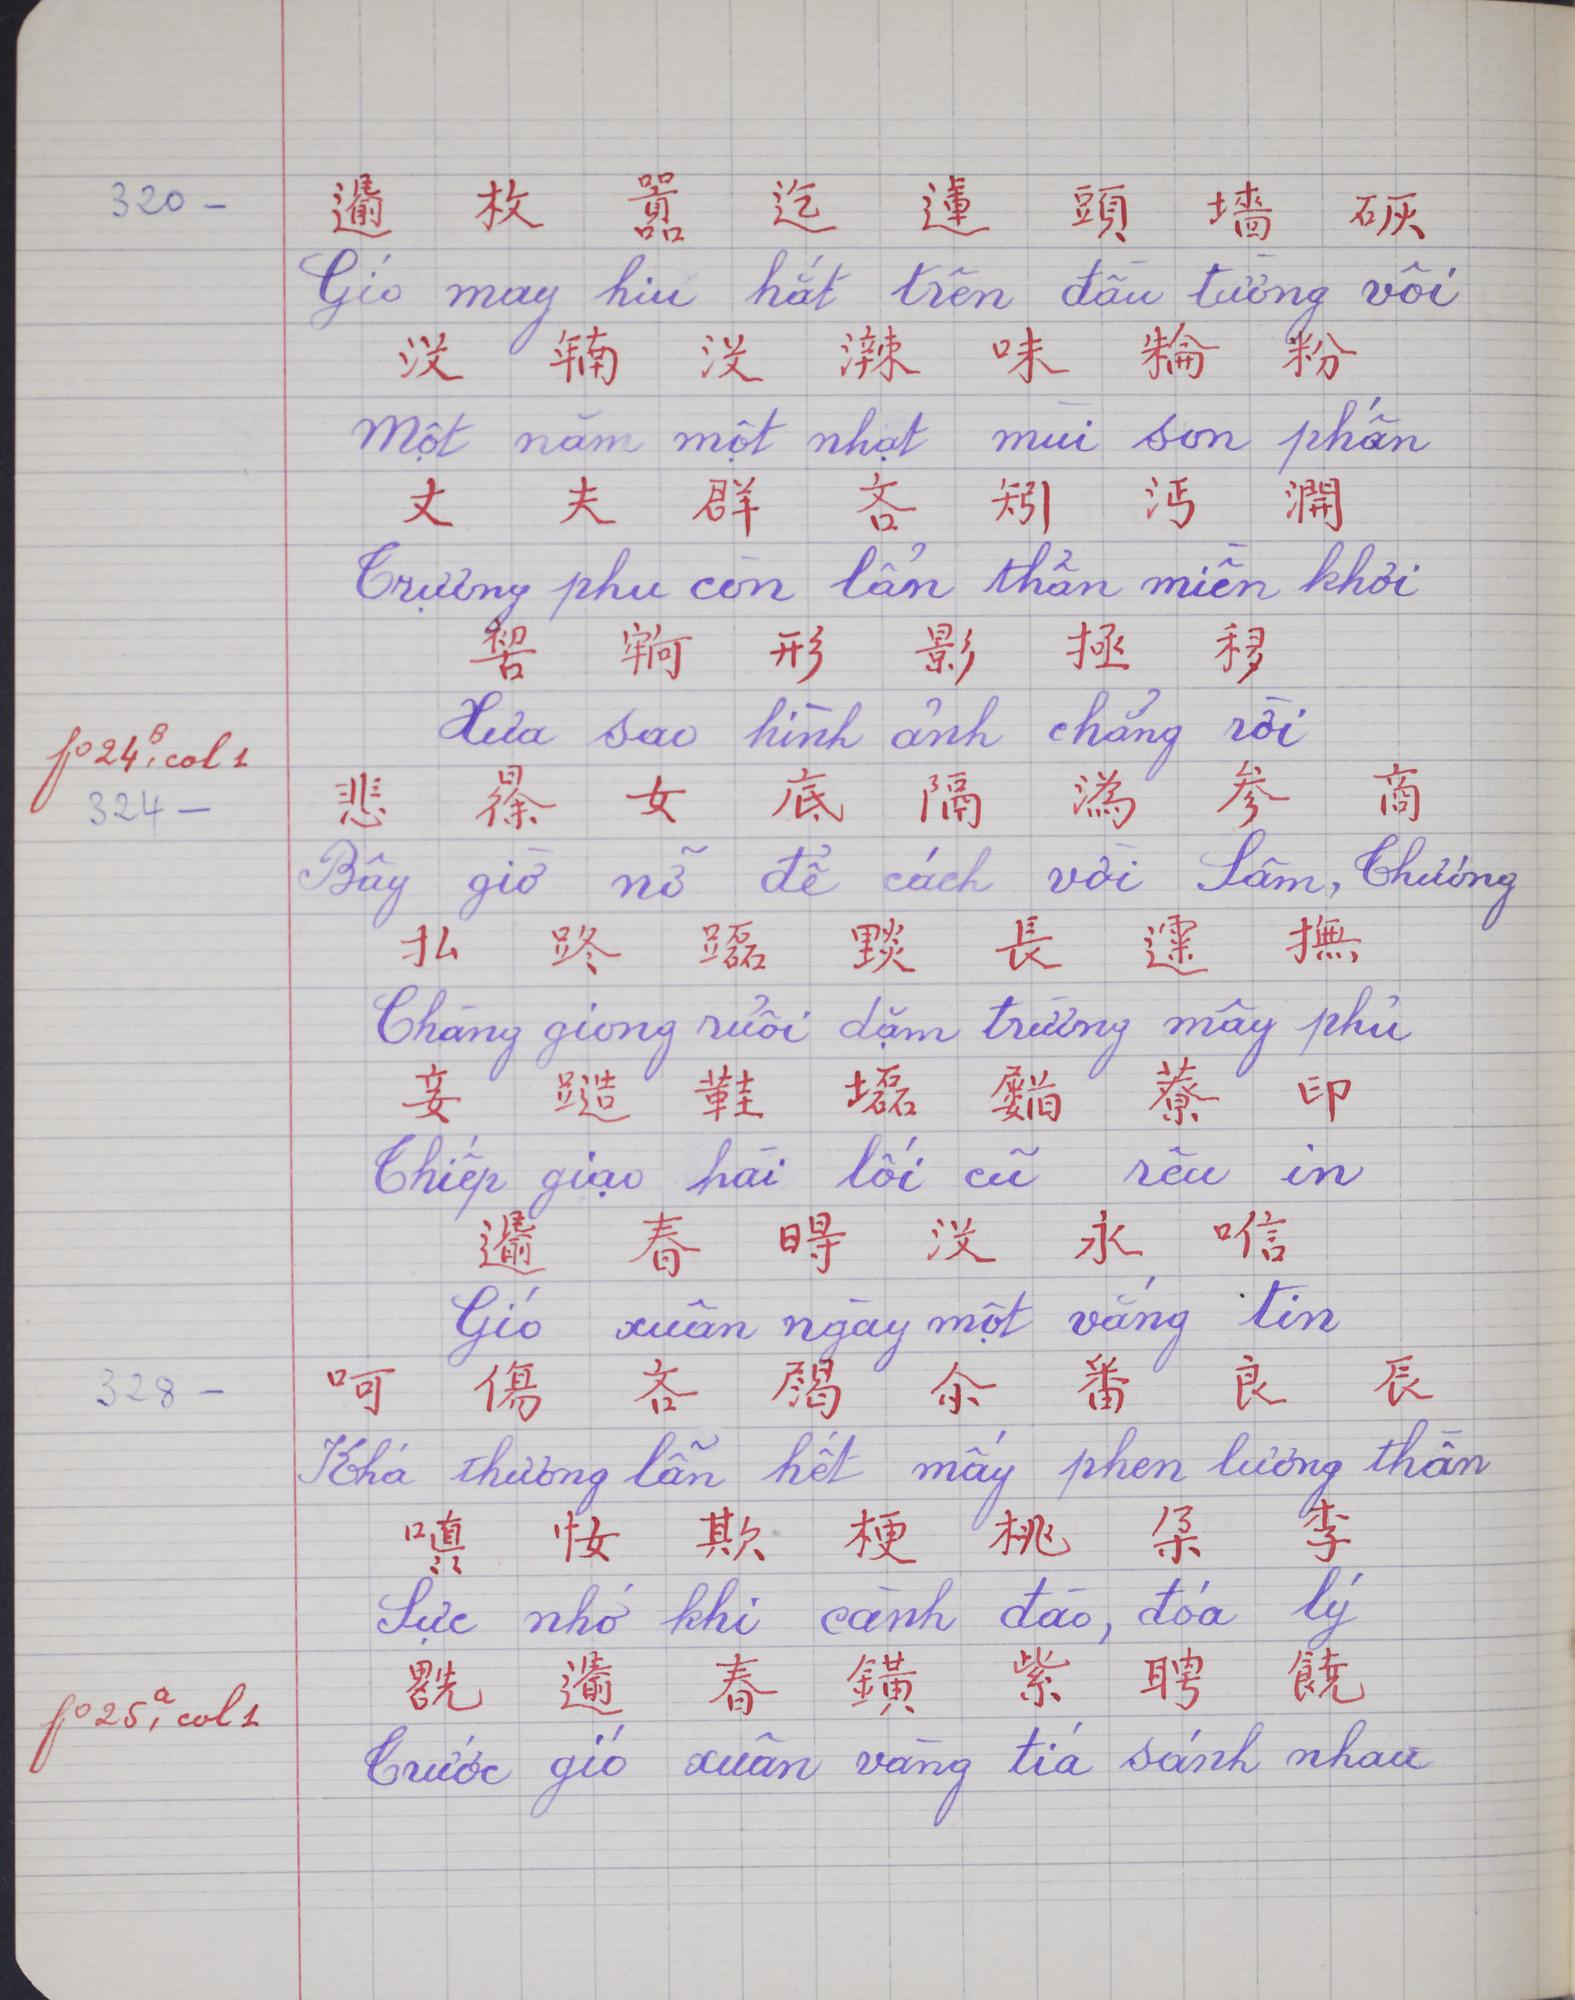 320 – 𬲇 枚 囂 迄 蓮 頭 墻 砨
Gió may hiu hắt trên đầu tường vôi
沒 𢆥 沒 辢 味 粉
Một năm một nhạt mùi son phấn
丈 夫 群 吝 矧 沔 𣾺
Trượng phu còn lẩn thẩn miền khơi
𠸗 形 影 拯 移
Xưa sao hình ảnh chẳng rời
fº 24, B col 1
324 – 悲 𣇞 女 底 隔 潙 参 商
Bây giờ nỡ để cách vời Sâm, Thương
払 𨀐 𨅉 長 𩄲 撫
Chàng giong ruổi dặm trường mây phủ
妾 𨅮 鞋 𡓃 印
Thiếp giạo hài lối cũ rêu in
𬲇 春 㝵 沒 永 𠒷
Gió xuân ngày một vắng tin
328 – 呵 傷 吝 歇 氽 番 良 辰
Khá thương lẫn hết mấy phen lương thần
㗂 𢘾 欺 梗 桃 朶 李
Sực nhớ khi cành đào, đóa lý
fº 25, a col 1
𠠩 𬲇 春 鐄 紫 聘 饒
Trước gió xuân vàng tía sánh nhau